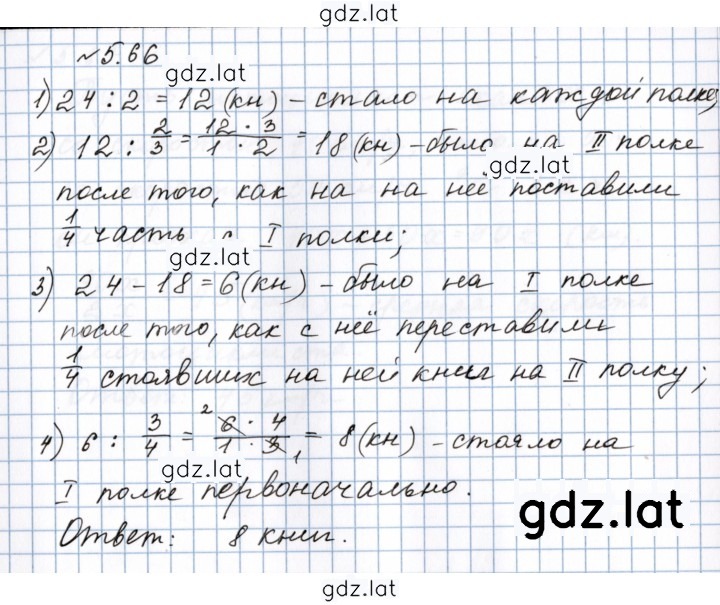 gdz.lat
№ 5.66
gdz.lat
1) 24 : 2 = 12 (кн) – стало на каждой полке;
2) 12 : 2/3 = 12 · 3 / 1 · 2 = 18 (кн) – было на II полке
gdz.lat
после того, как на на неё поставили
1/4 часть с I полки;
gdz.lat
3) 24 – 18 = 6 (кн) – было на I полке
после того, как с неё переставили
1/4 стоявших на ней книг на II полку;
4) 6 : 3/4 = 6 2 · 4 / 1 · 3 1 = 8 (кн) – стояло на
gdz.lat
I полке первоначально.
gdz.lat
Ответ: 8 книг.
gdz.lat